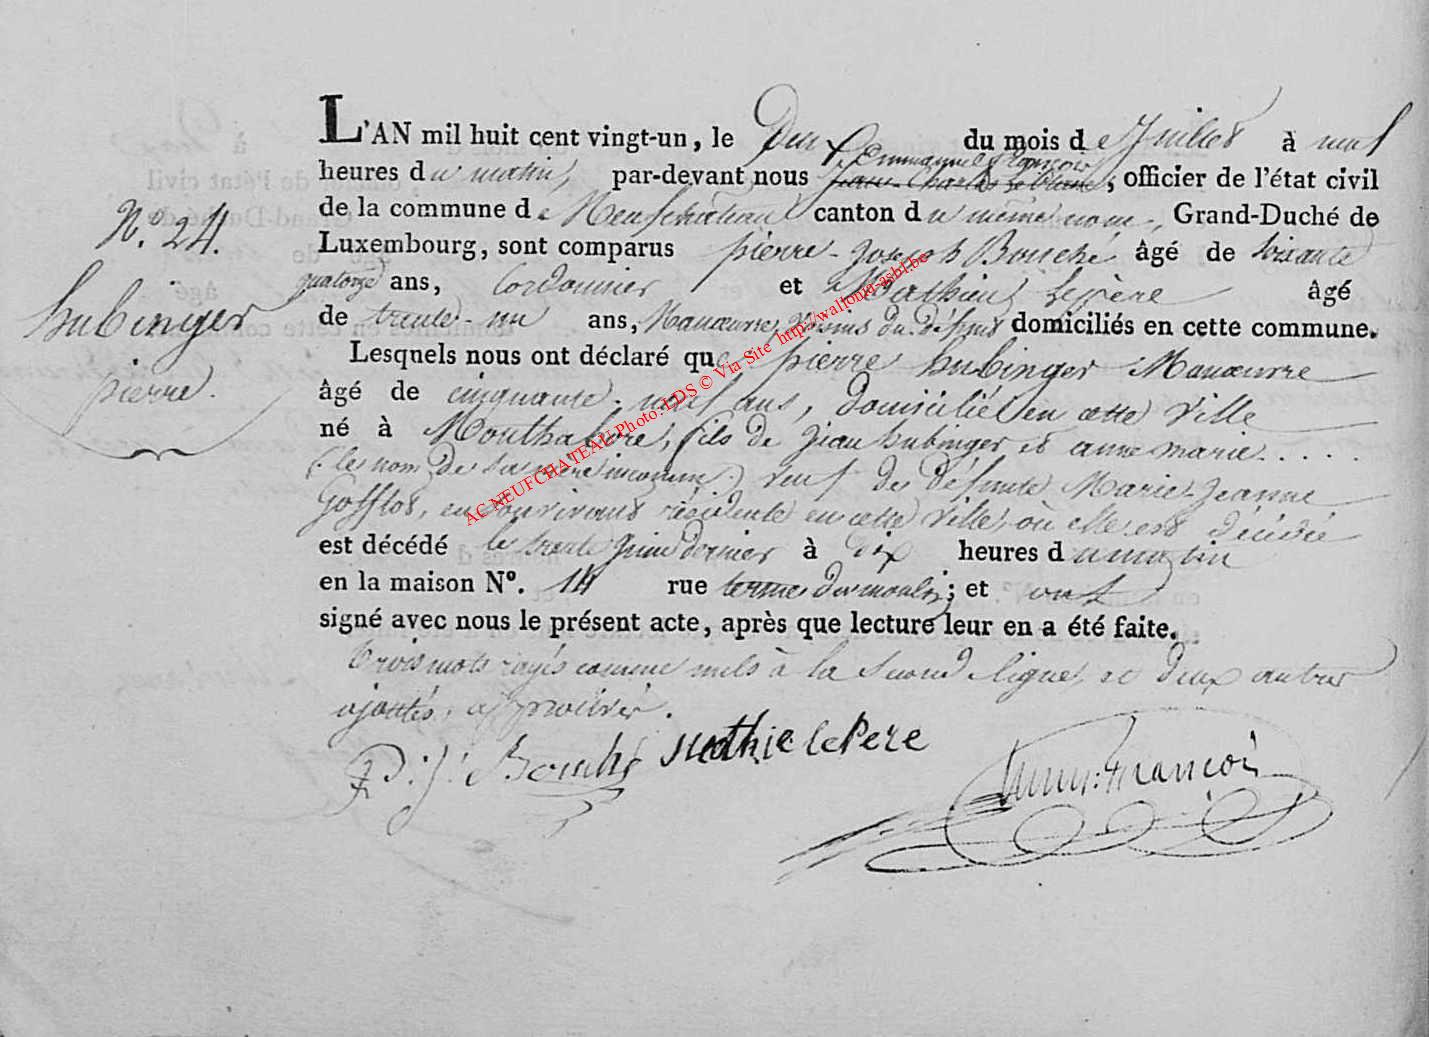 L'AN mil huit cent vingt-un, le Deux du mois de Juillet à neuf
Emmanuel François
heures du matin, par-devant nous Jean-Charles ; officier de l'état civil
de la commune de Neufchateau canton du même nom, Grand-Duché de
Luxembourg, sont comparus pierre-Joseph Bouché âgé de soixante
quatorze ans, Cordonnier et Mathieu Lepère âgé
de trente-un ans, Manœuvre, voisins du défunt domiciliés en cette commune.
Lesquels nous ont déclaré que pierre hubinger Manœuvre
âgé de cinquante-neuf ans, domicilié en cette ville
né à Monthabore, fils de Jean hubinger et anne marie.....
(le nom de sa mère inconnu) veuf de défunte Marie-Jeanne
en résidente en cette ville, où elle est décédée
est décédé le trente Juin dernier à dix heures du matin
en la maison N°. 14 rue terme des moulin; et ont
signé avec nous le présent acte, après que lecture leur en a été faite.
trois mots rayés comme nuls à la seconde ligne, et deux autres
ajoutés, approuvés.
P. J. Bouché Mathie lePere Emm: François
N°. 24.
hubinger
pierre.
AC NEUFCHATEAU Photo: LDS © Via Site http://wallonia-asbl.be